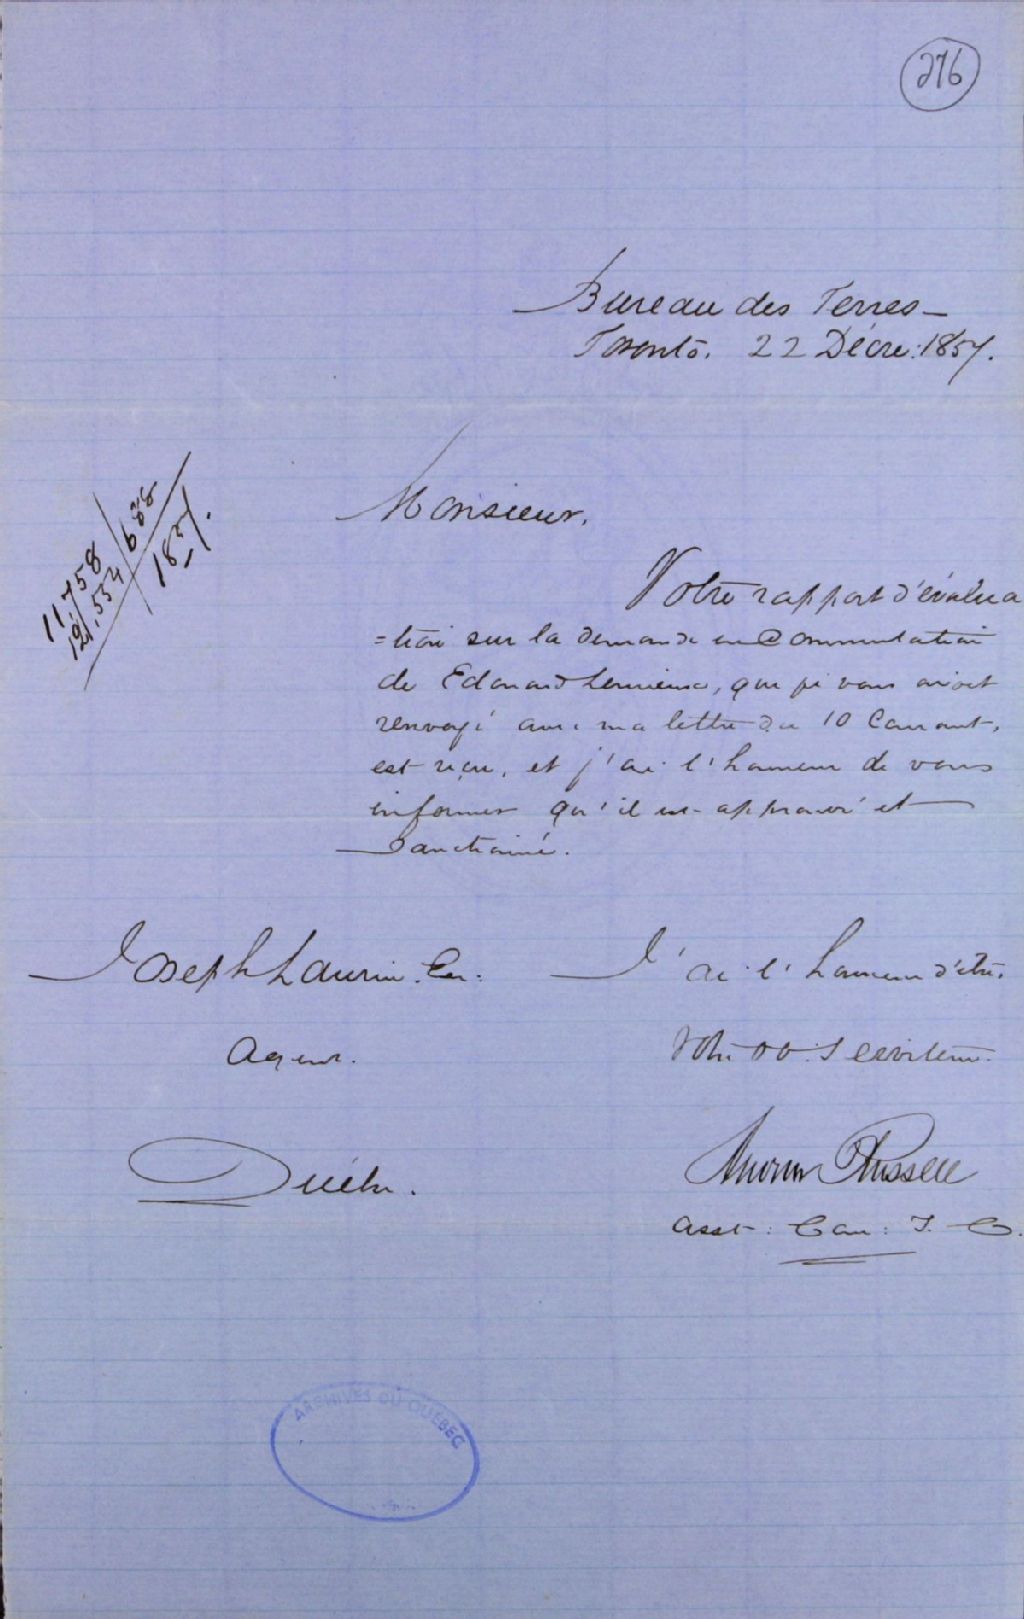 276
Bureau des Terres
Toronto. 22 Décre: 1857.
11,758
12,534 / 688
1857.
Monsieur,
Votre rapport d'évalua
=tion sur la demande en Commutation
de Edouard Lemieux, que je vous avois
renvoyé avec ma lettre du 10 Courant,
est reçu, et j'ai l'honneur de vous
informer qu'il est approuvé et
Sanctionné.
Joseph Laurin. Ecr.
J'ai l'honneur d'être.
Agent.
Votre OO. Serviteur.
Québec.
Andrew Russell
Asst: Com: T. C.
ARCHIVES DU QUÉBEC